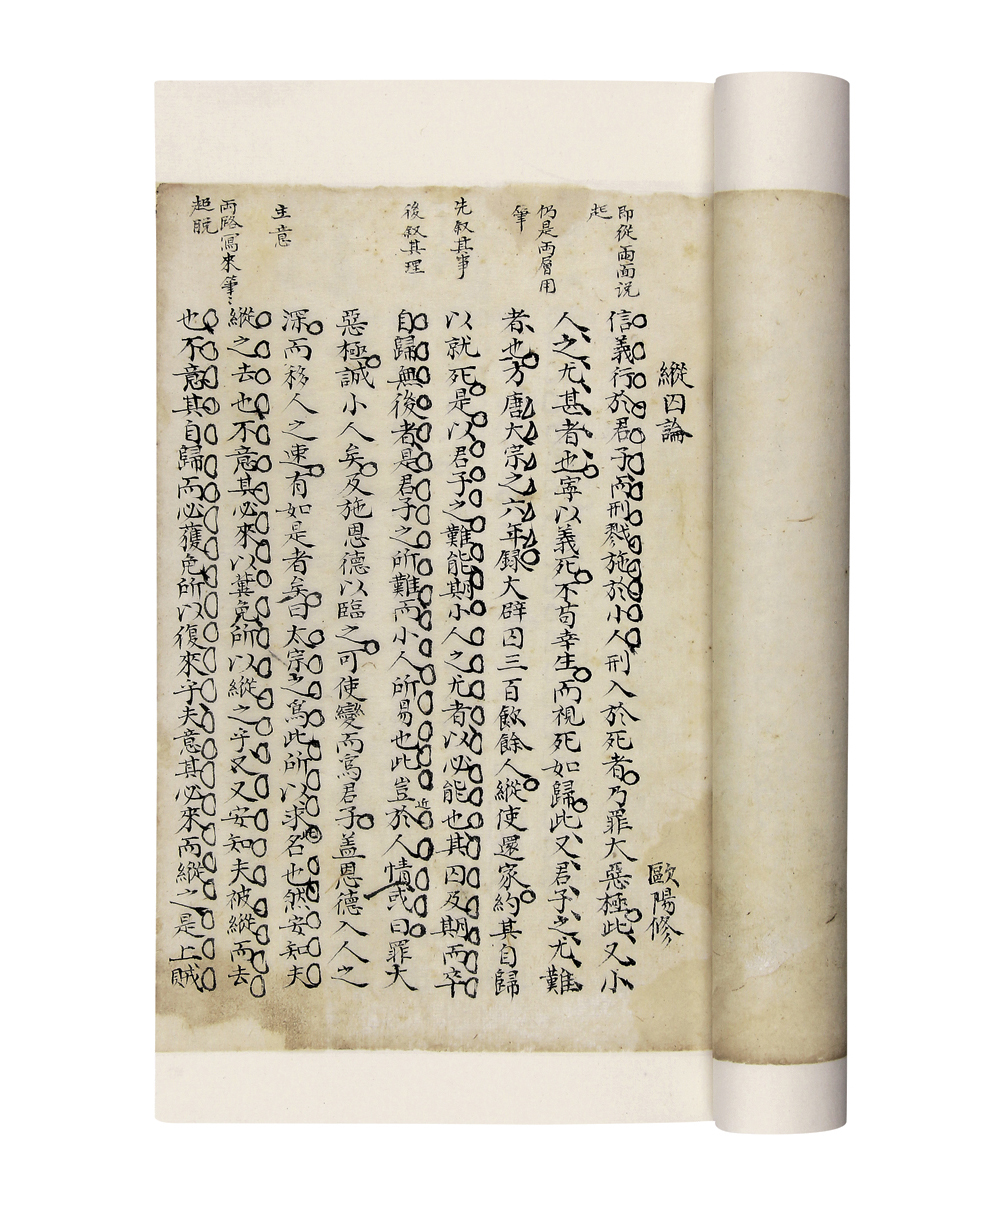 縱囚論
歐陽修
即從兩面说
起
仍是兩層用
筆
先叙其事
後叙其理
主意
兩路寫來筆〻
超脱
信義行於君子而刑戮施於小人刑入於死者乃罪大惡極此又小
人之尤甚者也寧以義死不苟幸生而視死如歸此又君子之尤難
者也方唐大宗之六年録大辟囚三百餘人縱使還家約其自歸
以就死是以君子之難能期小人之尤者以必能也其囚及期而卒
自歸無後者是君子之所難而小人所易也此豈近於人情或曰罪大
惡極誠小人矣及施恩德以臨之可使變而寫君子盖恩德入人之
深而移人之速有如是者矣曰太宗之爲此所以求此名也然安知夫
縱之去也不意其必來以冀免所以縱之乎又又安知夫被縱而去
也不意其自歸而必獲免所以復來乎夫意其必來而縱之是上賊